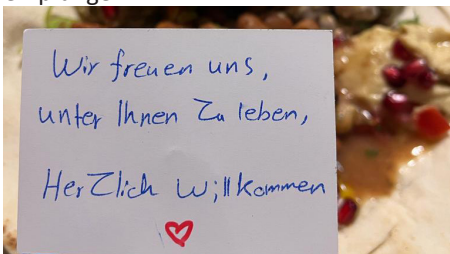 Wir freuen uns,
unter Ihnen Zu leben,
HerZlich Willkommen